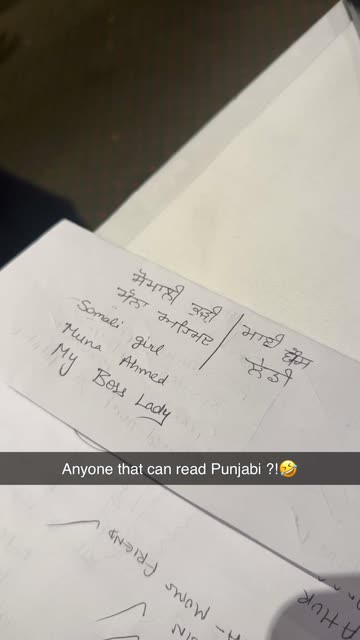 ਸੋਮਾਲੀ ਕੁੜੀ
ਮੁੰਨਾ ਅਹਿਮਦ
ਮਾਈ ਬੌਸ
ਲੇਡੀ
Somali girl
Muna Ahmed
My Boss Lady
Anyone that can read Punjabi ?!🤣
- MUMS FRIEND
THUR